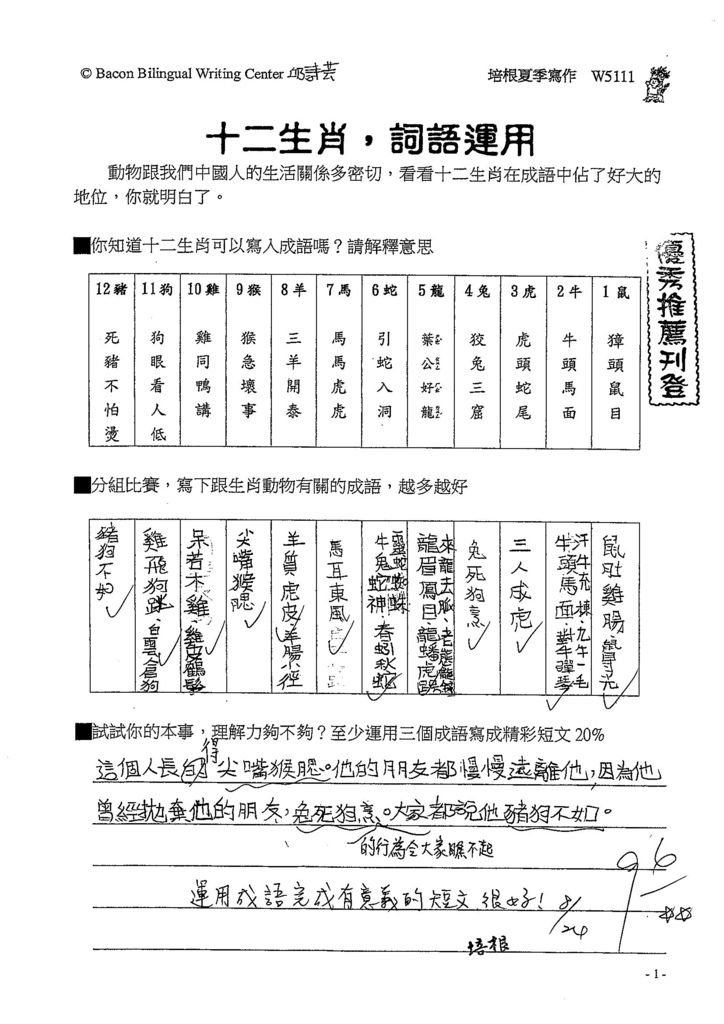 © Bacon Bilingual Writing Center 邱詩芸
培根夏季寫作 W5111
十二生肖，詞語運用
動物跟我們中國人的生活關係多密切，看看十二生肖在成語中佔了好大的
地位，你就明白了。
優秀推薦刊登
■你知道十二生肖可以寫入成語嗎？請解釋意思
1鼠 獐頭鼠目
2牛 牛頭馬面
3虎 虎頭蛇尾
4兔 狡兔三窟
5龍 葉公好龍
6蛇 引蛇入洞
7馬 馬馬虎虎
8羊 三羊開泰
9猴 猴急壞事
10雞 雞同鴨講
11狗 狗眼看人低
12豬 死豬不怕燙
■分組比賽，寫下跟生肖動物有關的成語，越多越好
鼠肚雞腸、鼠目寸光
汗牛充棟、九牛一毛
牛頭馬面、對牛彈琴
三人成虎
兔死狗烹
來龍去脈、老態龍鍾
龍眉鳳目、龍蟠虎踞
靈蛇
牛鬼蛇神、春蚓秋蛇
馬耳東風
羊質虎皮、羊腸小徑
尖嘴猴腮
呆若木雞、雞皮鶴髮
雞飛狗跳、白雲倉狗
豬狗不如
■試試你的本事，理解力夠不夠？至少運用三個成語寫成精彩短文20%
得
這個人長的尖嘴猴腮。他的朋友都慢慢遠離他，因為他
曾經拋棄他的朋友，兔死狗烹。大家都說他豬狗不如。
的行為令大家瞧不起
96
運用成語完成有意義的短文，很好！8/24
培根
- 1 -